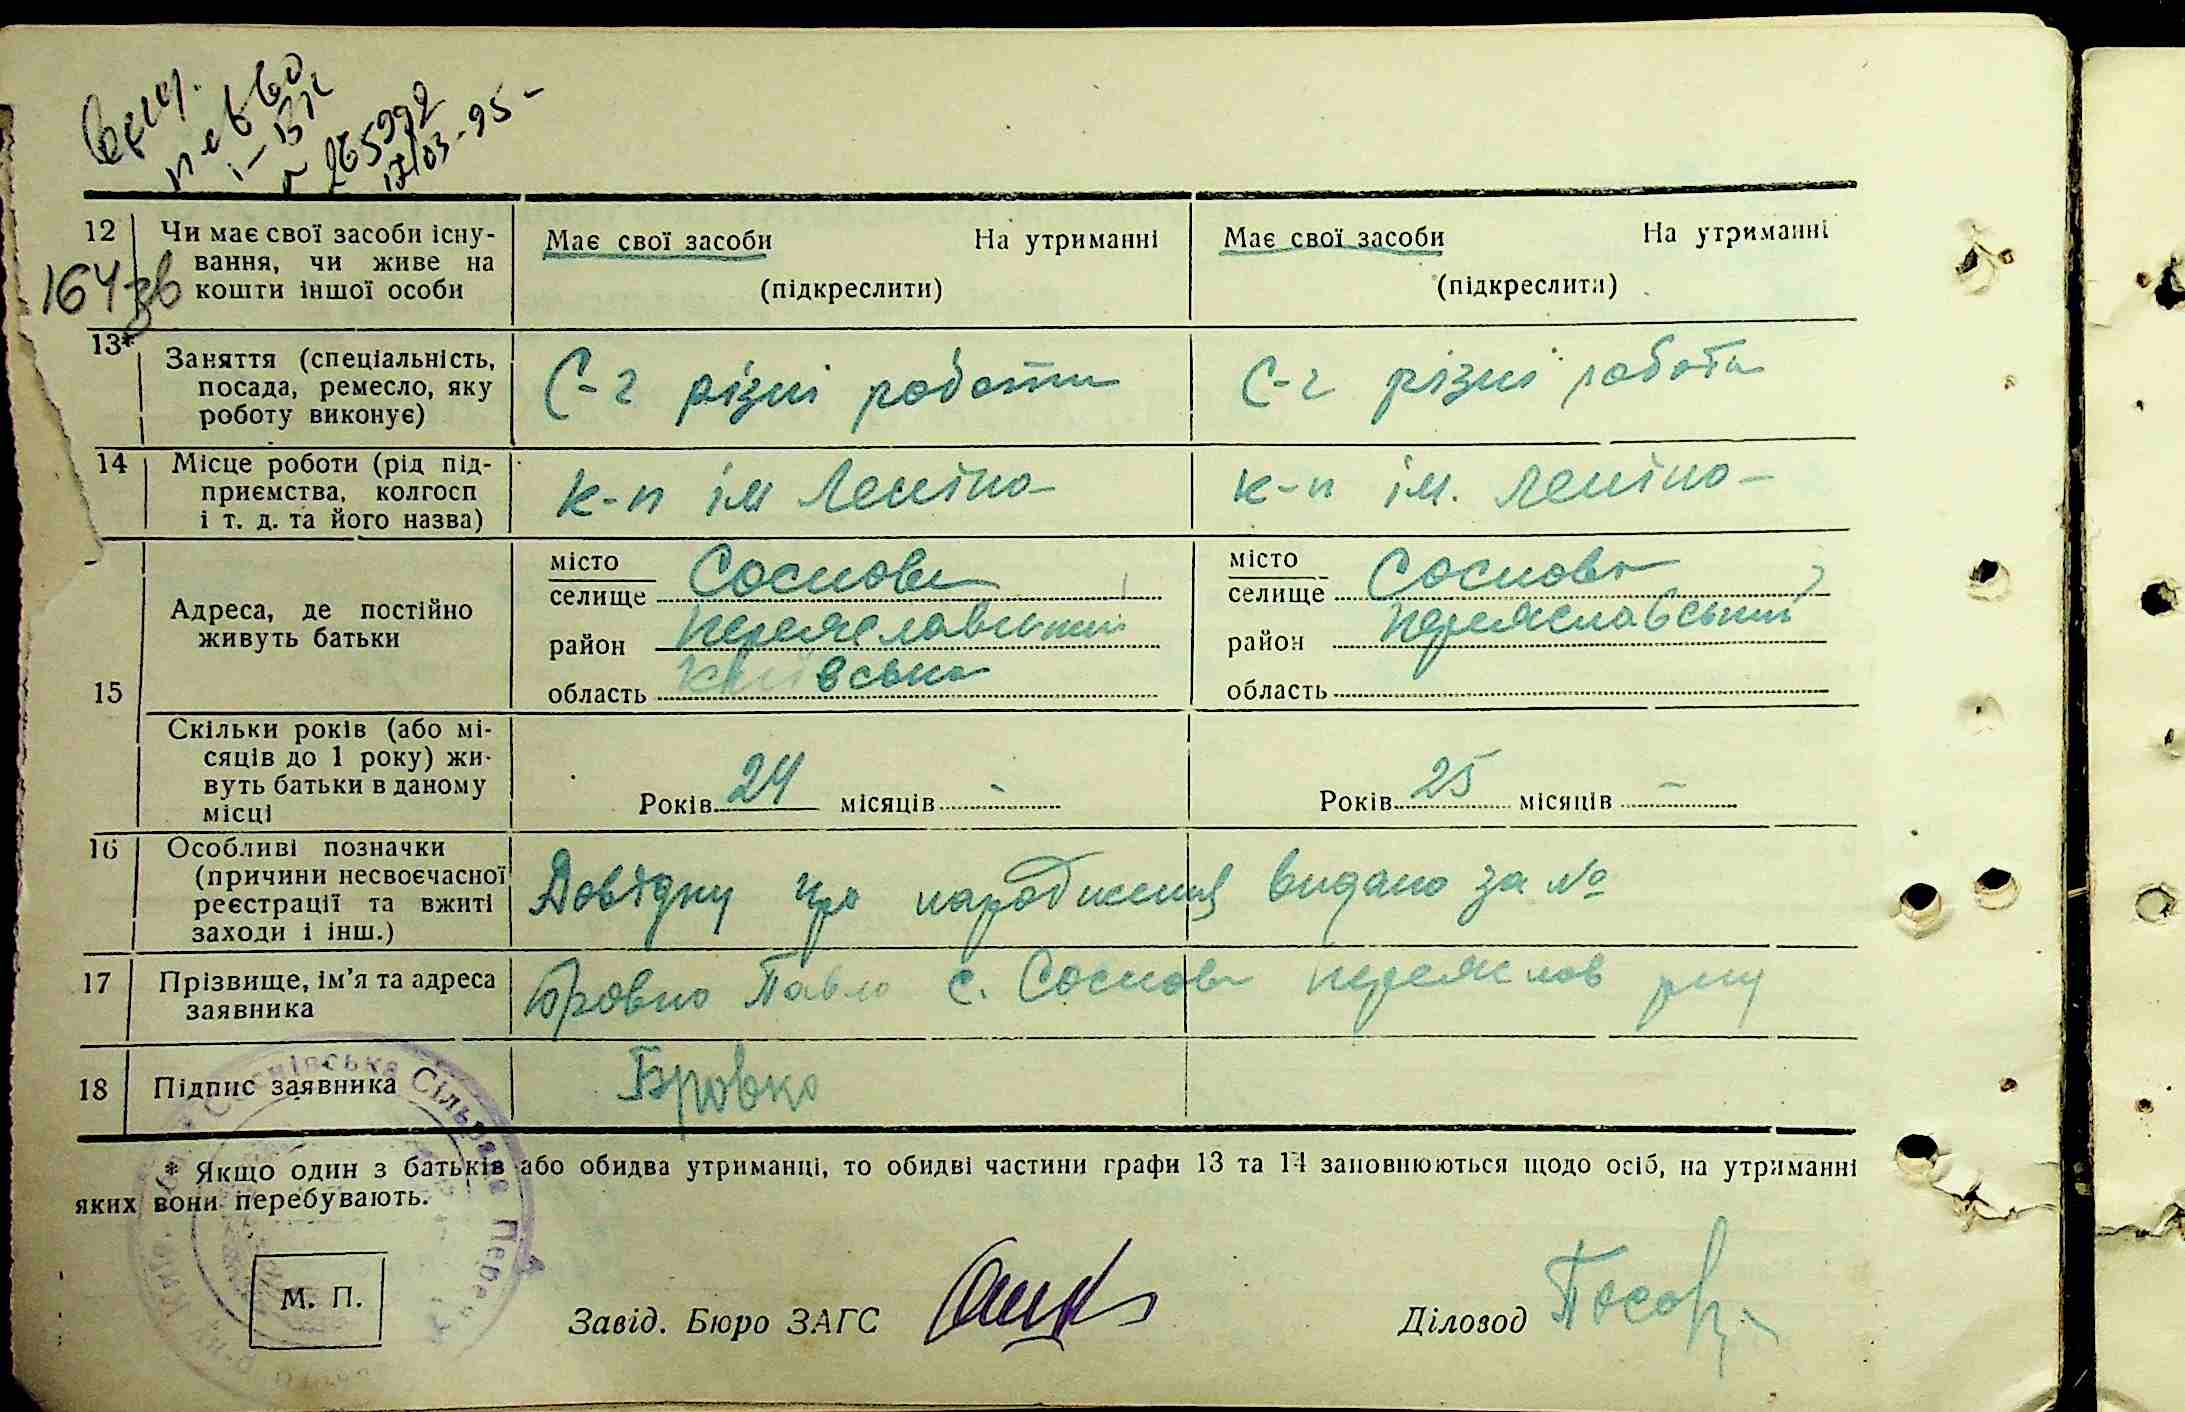 265992
17/03-95-
12 Чи має свої засоби існу-
вання, чи живе на
кошти іншої особи
Має свої засоби На утриманні
(підкреслити)
Має свої засоби На утриманні
(підкреслити)
164зв
13* Заняття (спеціальність,
посада, ремесло, яку
роботу виконує)
С-г різні роботи
С-г різні роботи
14 Місце роботи (рід під-
приємства, колгосп
і т. д. та його назва)
к-п ім Леніна
к-п ім. Леніна
15 Адреса, де постійно
живуть батьки
місто
селище Соснова
район Переяславський
область Київська
місто
селище Соснова
район Переяславський
область
Скільки років (або мі-
сяців до 1 року) жи-
вуть батьки в даному
місці
Років 24 місяців -
Років 25 місяців -
16 Особливі позначки
(причини несвоєчасної
реєстрації та вжиті
заходи і інш.)
Довідку про народження видано за №
17 Прізвище, ім'я та адреса
заявника
Бровко Павло с. Соснова Переяслав р-ну
18 Підпис заявника
Бровко
Соснівська Сільрада
* Якщо один з батьків або обидва утриманці, то обидві частини графи 13 та 14 заповнюються щодо осіб, на утриманні
яких вони перебувають.
М. П.
Завід. Бюро ЗАГС
Діловод